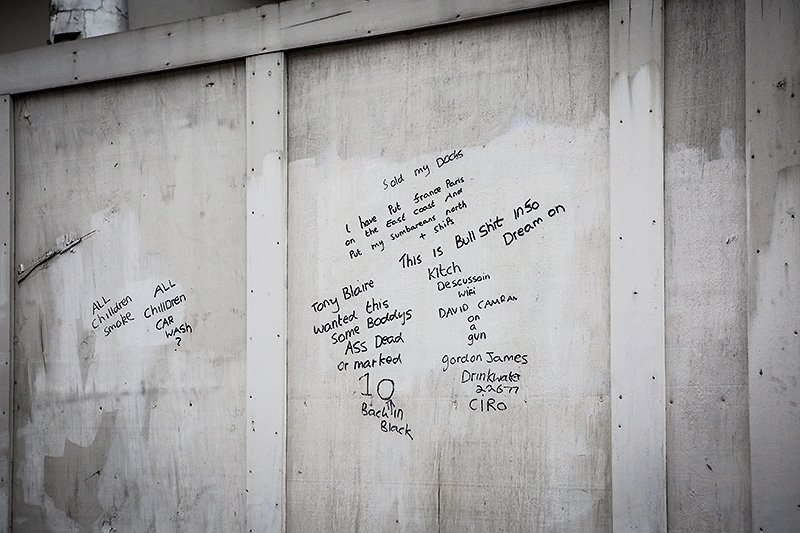 ALL
Chilldren
smoke
ALL
ChillDren
CAR
WASH
?
Sold my Docks
I have Put france Paris
on the East coast And
Put my Sumbareans north
+ Shift
This is Bull Shit Info
Dream on
Tony Blaire
wanted this
Some Booddys
ASS Dead
or marked
10
Back in
Black
KItch
Descussoin
wifi
DAVID CAMRAN
on
a
gun
gordon James
Drinkwater
22677
CIRO